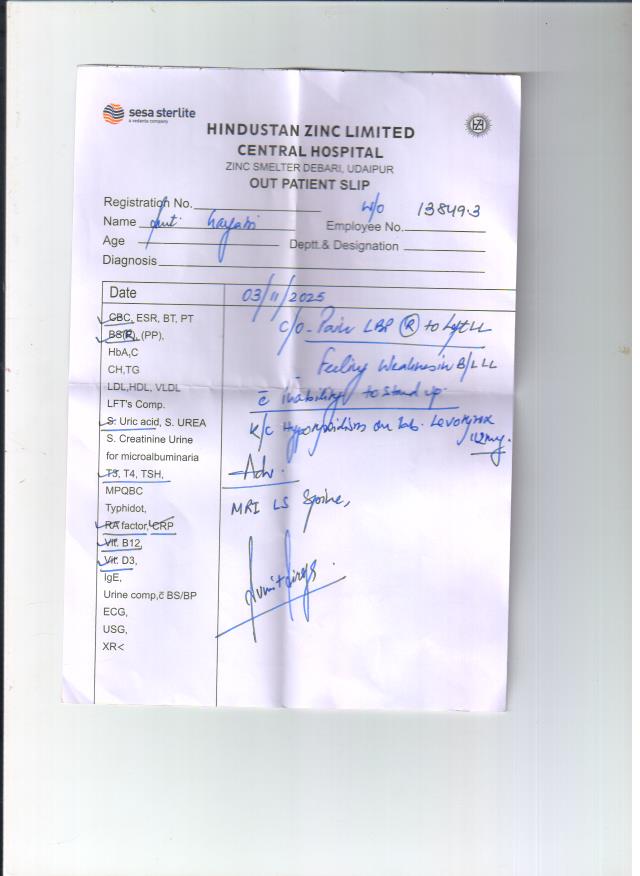 sesa sterlite
a vedanta company
HINDUSTAN ZINC LIMITED
CENTRAL HOSPITAL
ZINC SMELTER DEBARI, UDAIPUR
OUT PATIENT SLIP
Registration No. W/o 13849.3
Name Employee No.
Age Deptt.& Designation
Diagnosis
Date 03/11/2025
CBC, ESR, BT, PT
BS(R), (PP),
HbA,C
CH,TG
LDL,HDL, VLDL
LFT's Comp.
S. Uric acid, S. UREA
S. Creatinine Urine
for microalbuminaria
T3, T4, TSH,
MPQBC
Typhidot,
RA factor, CRP
Vit. B12,
Vit. D3,
IgE,
Urine comp,c̄ BS/BP
ECG,
USG,
XR<
C/o - Pain LBP (R) to Left LL
Feeling Weakness in B/L LL
c̄ inability to stand up.
K/c on Tab.
Adv.
MRI LS Spine,